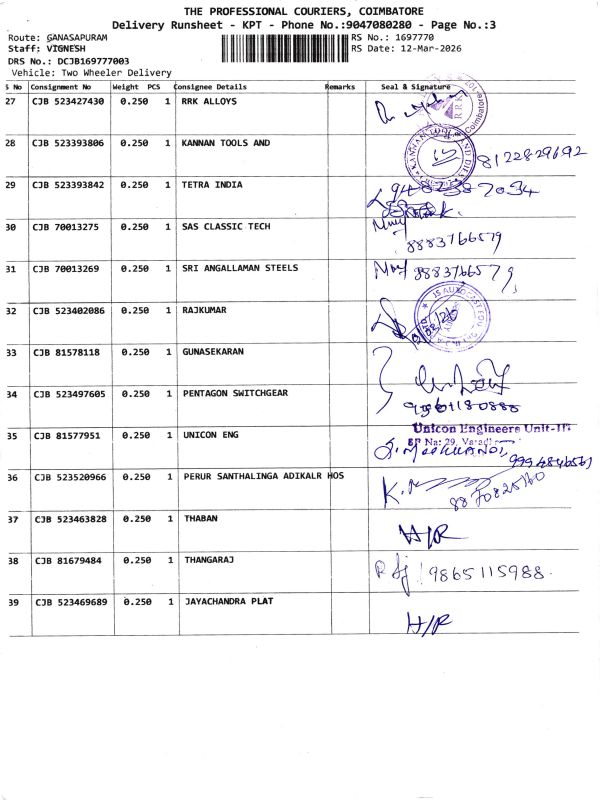 THE PROFESSIONAL COURIERS, COIMBATORE
Delivery Runsheet - KPT - Phone No.:9047080280 - Page No.:3
Route: GANASAPURAM
RS No.: 1697770
Staff: VIGNESH
RS Date: 12-Mar-2026
DRS No.: DCJB169777003
Vehicle: Two Wheeler Delivery
S No Consignment No Weight PCS Consignee Details Remarks Seal & Signature
27 CJB 523427430 0.250 1 RRK ALLOYS
RRK
Coimbatore
28 CJB 523393806 0.250 1 KANNAN TOOLS AND 8122829692
29 CJB 523393842 0.250 1 TETRA INDIA
30 CJB 70013275 0.250 1 SAS CLASSIC TECH
8883766579
31 CJB 70013269 0.250 1 SRI ANGALLAMAN STEELS 8883766579
32 CJB 523402086 0.250 1 RAJKUMAR
33 CJB 81578118 0.250 1 GUNASEKARAN
34 CJB 523497605 0.250 1 PENTAGON SWITCHGEAR
35 CJB 81577951 0.250 1 UNICON ENG
Unicon Engineers Unit-III
SF No: 29,
36 CJB 523520966 0.250 1 PERUR SANTHALINGA ADIKALR HOS
8870825160
37 CJB 523463828 0.250 1 THABAN H/R
38 CJB 81679484 0.250 1 THANGARAJ 9865115988
39 CJB 523469689 0.250 1 JAYACHANDRA PLAT H/R